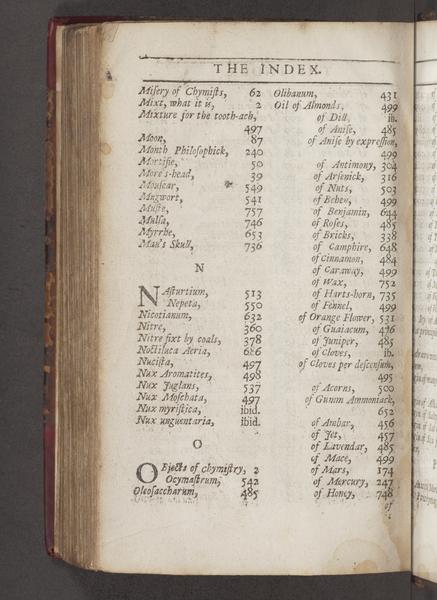 THE INDEX.
Miſery of Chymiſts, 62
Mixt, what it is, 2
Mixture for the tooth-ach,
497
Moon, 87
Month Philoſophick, 240
Mortifie, 50
More's-head, 39
Mouſear, 549
Mugwort, 541
Muſte, 757
Mulſa, 746
Myrrhe, 653
Man's Skull, 736
N
NAſturtium, 513
Nepeta, 550
Nicotianum, 632
Nitre, 360
Nitre fixt by coals, 378
Noctiluca Aeria, 686
Nuciſta, 497
Nux Aromatites, 498
Nux Juglans, 537
Nux Moſchata, 497
Nux myriſtica, ibid.
Nux unguentaria, ibid.
O
OBjects of Chymiſtry, 2
Ocymaſtrum, 542
Oleoſaccharum, 485
Olibanum, 431
Oil of Almonds, 499
of Dill, ib.
of Aniſe, 485
of Aniſe by expreſſion,
499
of Antimony, 304
of Arſenick, 316
of Nuts, 503
of Behen, 499
of Benjamin, 644
of Roſes, 485
of Bricks, 338
of Camphire, 648
of Cinnamon, 484
of Caraway, 499
of Wax, 752
of Harts-horn, 735
of Fennel, 499
of Orange Flower, 531
of Guaiacum, 426
of Juniper, 485
of Cloves, ib.
of Cloves per deſcenſum,
495
of Acorns, 500
of Gumm Ammoniack,
652
of Ambar, 456
of Jet, 457
of Lavendar, 485
of Mace, 499
of Mars, 174
of Mercury, 247
of Honey, 748
of